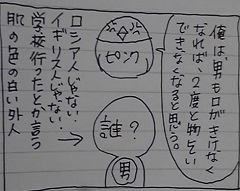 俺は、男も口がきけなく
なれば、2度と物をい
できなくなると思う。
ピンク
誰?
男
ロシア人じゃない。
イギリス人じゃない。
学校行ったとか言う
肌の色の白い外人